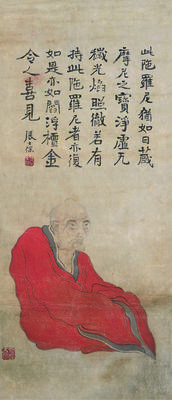 此陁羅尼猶如日藏
摩尼之寶淨虛无
穢光焰照徹若有
持此陁羅尼者亦復
如是亦如閻浮檀金
令人喜見